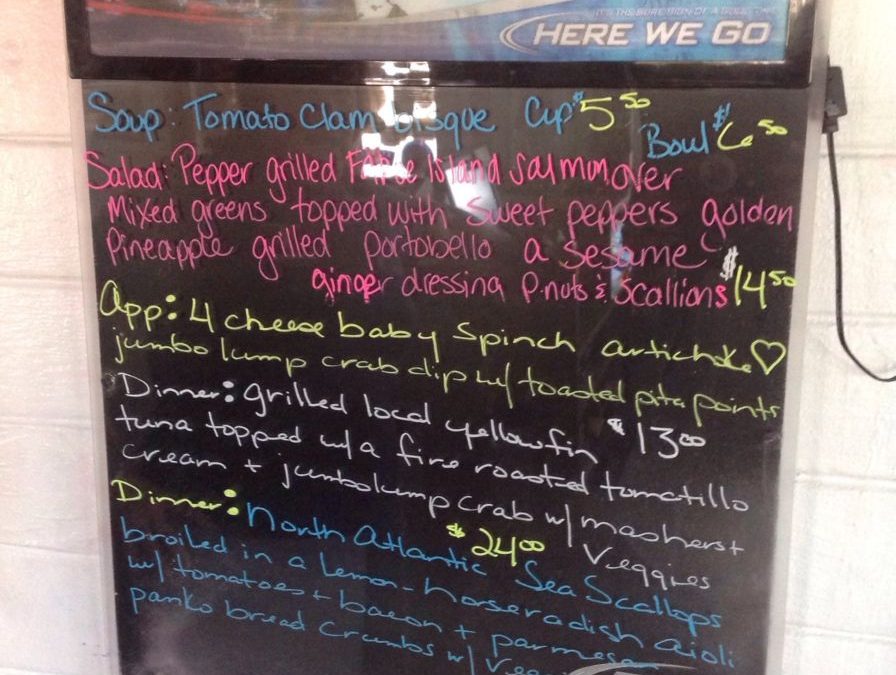 IT'S THE SURE SIGN OF A GOOD TIME
HERE WE GO
Soup: Tomato Clam bisque Cup $5 50
Bowl $6 50
Salad: Pepper grilled Faroe Island salmon over
Mixed greens topped with sweet peppers golden
Pineapple grilled portobello a sesame
ginger dressing P.nuts & scallions $14 50
App: 4 cheese baby Spinch artichoke ♡
jumbo lump crab dip w/ toasted pita points
Dinner: grilled local yellowfin $13 00
tuna topped w/ a fire roasted tomatillo
cream + jumbo lump crab w/ mashers +
Veggies
$24 00
Dinner: North Atlantic Sea Scallops
broiled in a lemon-horseradish aioli
w/ tomatoes + bacon + parmesan
panko bread crumbs w/